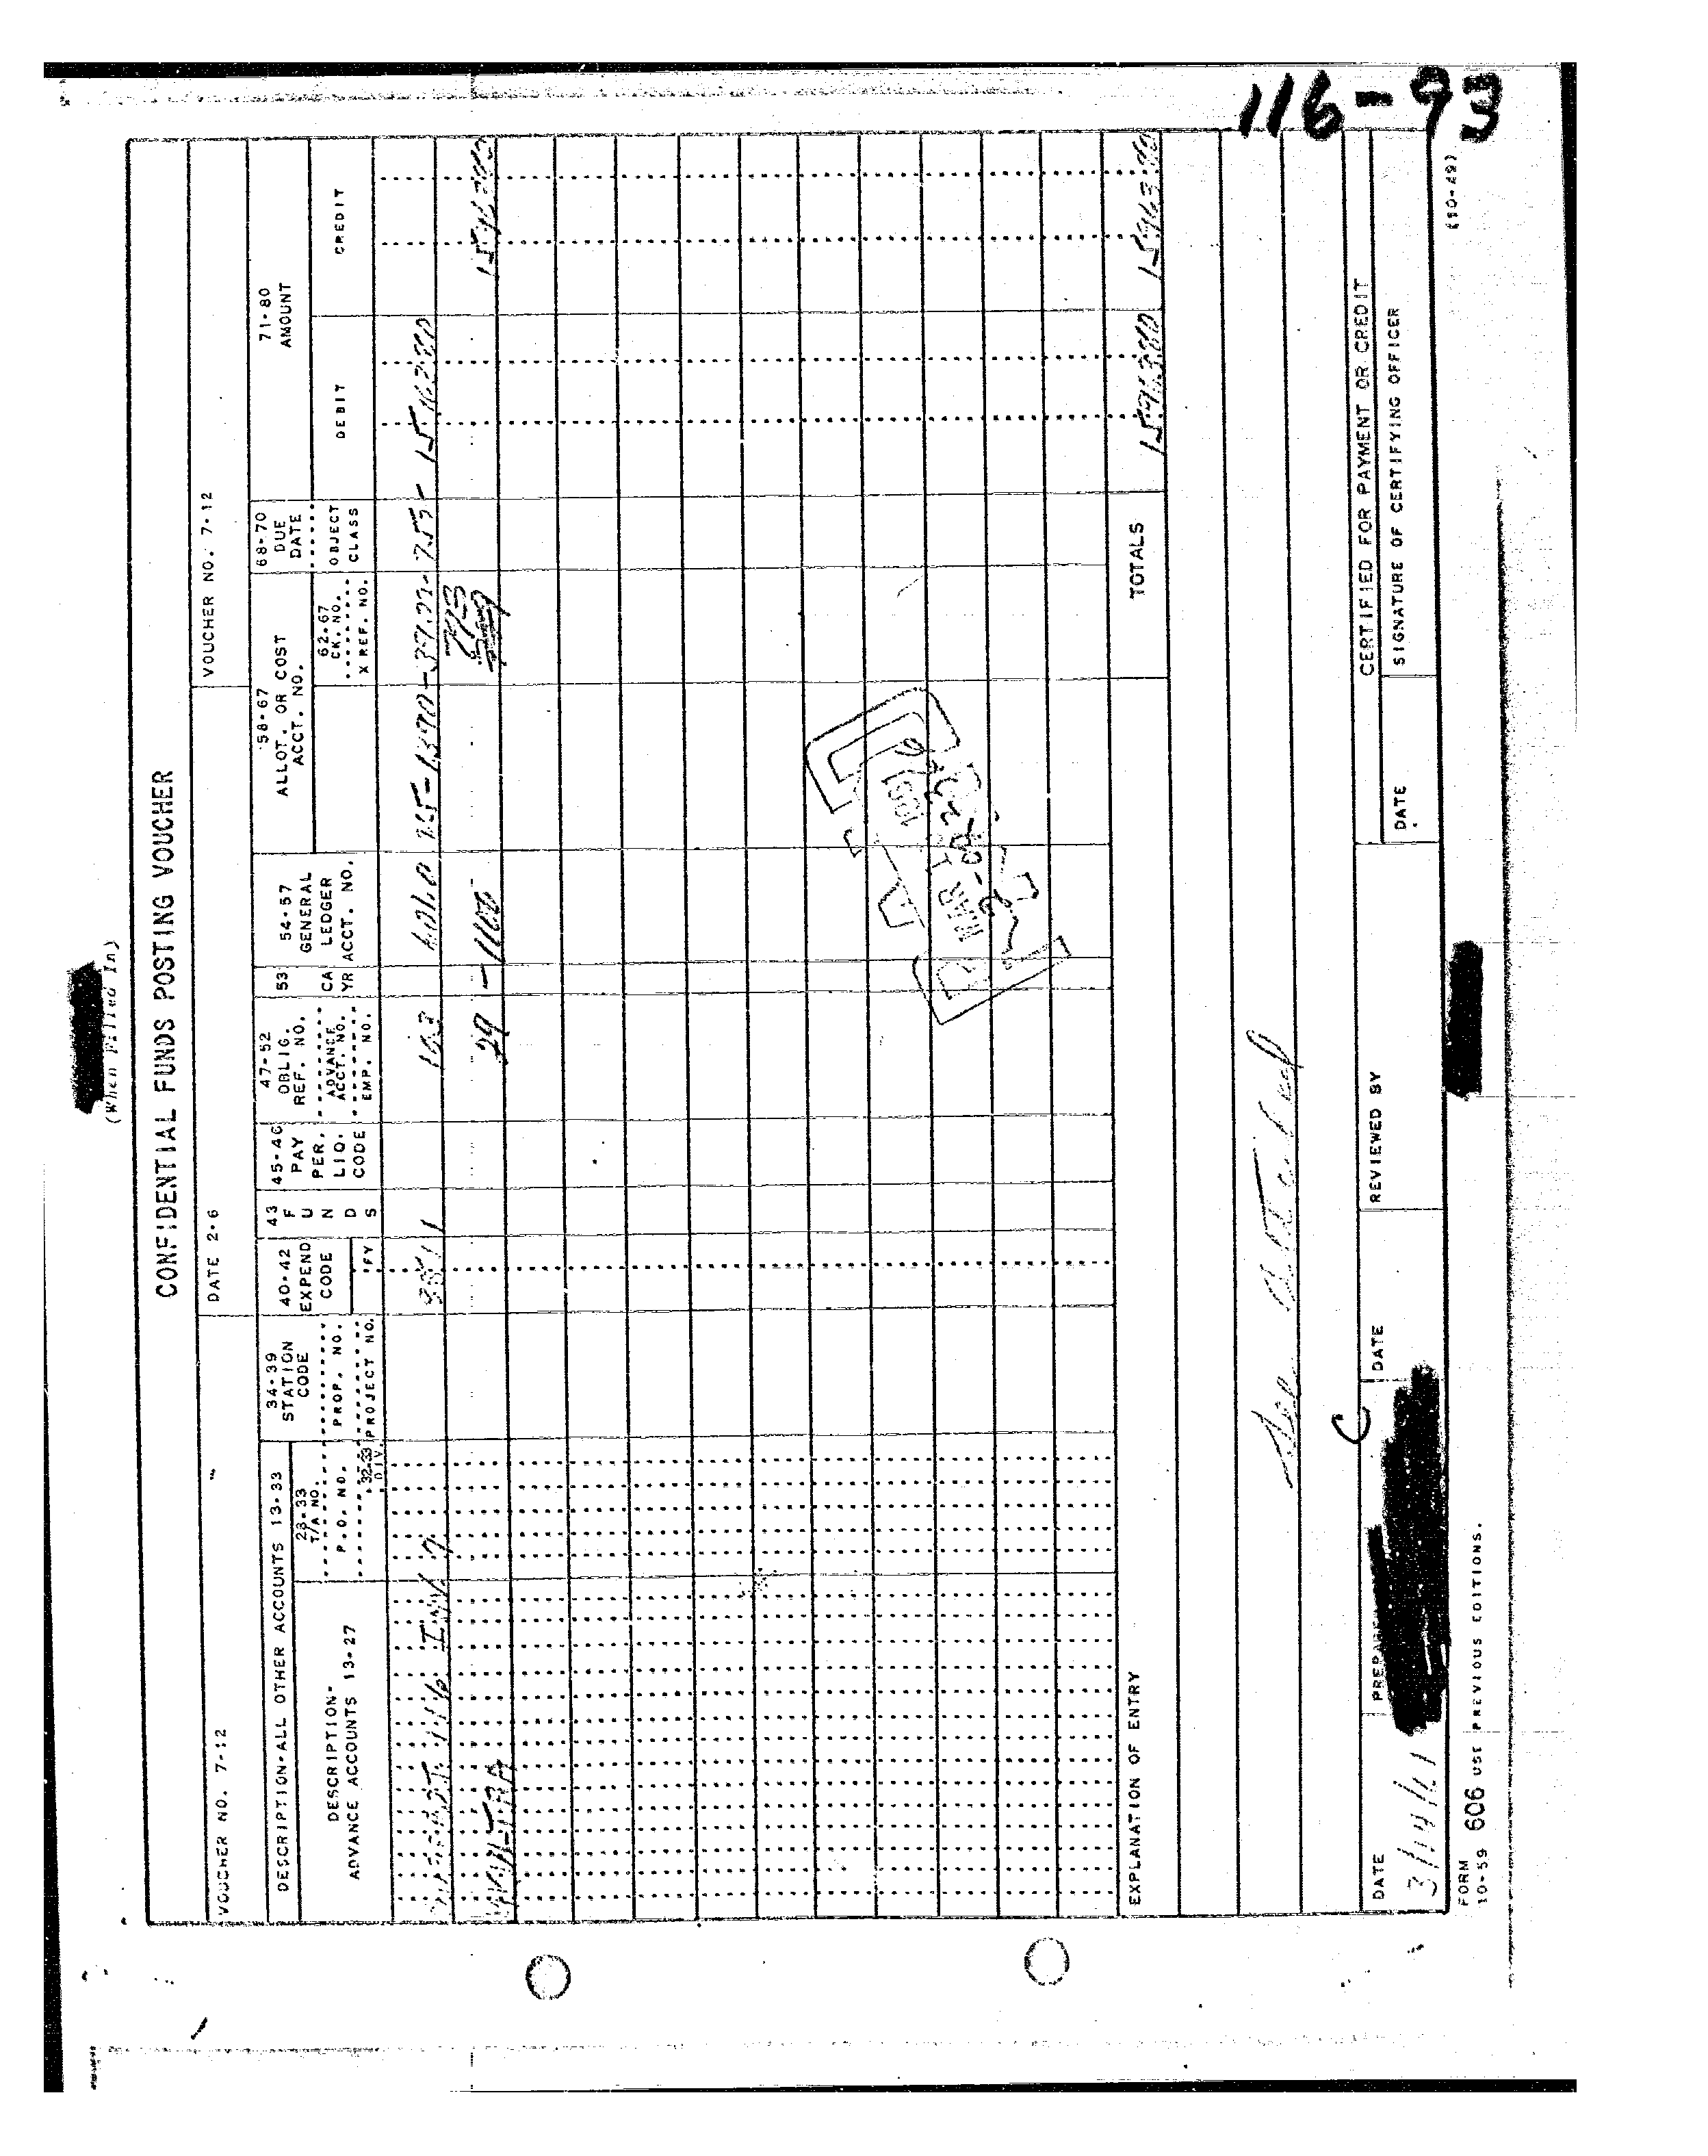 116-93
(When Filled In)
CONFIDENTIAL FUNDS POSTING VOUCHER
VOUCHER NO. 7-12
DATE 2-6
VOUCHER NO. 7-12
DESCRIPTION-ALL OTHER ACCOUNTS 13-33
DESCRIPTION-
ADVANCE ACCOUNTS 13-27
28-33
T/A NO.
P.O. NO.
32-33
DIV.
34-39
STATION
CODE
PROP. NO.
PROJECT NO.
40-42
EXPEND
CODE
FY
43
F
U
N
D
S
45-46
PAY
PER.
LIQ.
CODE
47-52
OBLIG.
REF. NO.
ADVANCE
ACCT. NO.
EMP. NO.
53
CA
YR
54-57
GENERAL
LEDGER
ACCT. NO.
58-67
ALLOT. OR COST
ACCT. NO.
62-67
CK. NO.
X REF. NO.
68-70
DUE
DATE
OBJECT
CLASS
71-80
AMOUNT
DEBIT
CREDIT
INV 7
163
29
TOTALS
EXPLANATION OF ENTRY
See attached
DATE
3/14/61
DATE
REVIEWED BY
CERTIFIED FOR PAYMENT OR CREDIT
DATE
SIGNATURE OF CERTIFYING OFFICER
FORM
10-59 606 USE PREVIOUS EDITIONS.
(10-49)